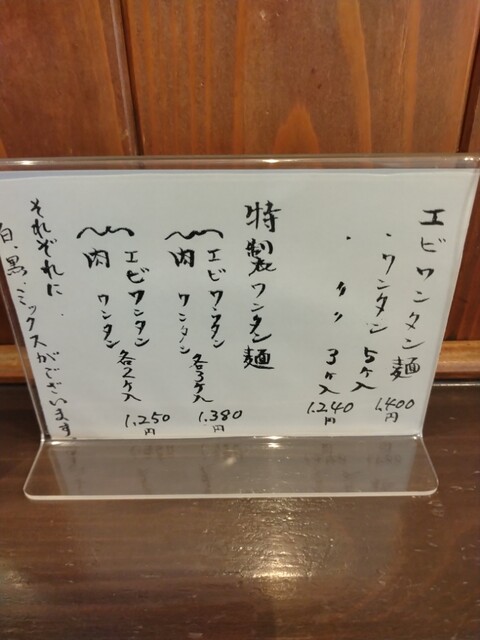 エビワンタン麺
・ワンタン5ヶ入 1,400円
・〃〃 3ヶ入 1,240円
特製ワンタン麺
エビワンタン
肉ワンタン 各3ヶ入 1,380円
エビワンタン
肉ワンタン 各2ヶ入 1,250円
それぞれに
白、黒、ミックスがございます。